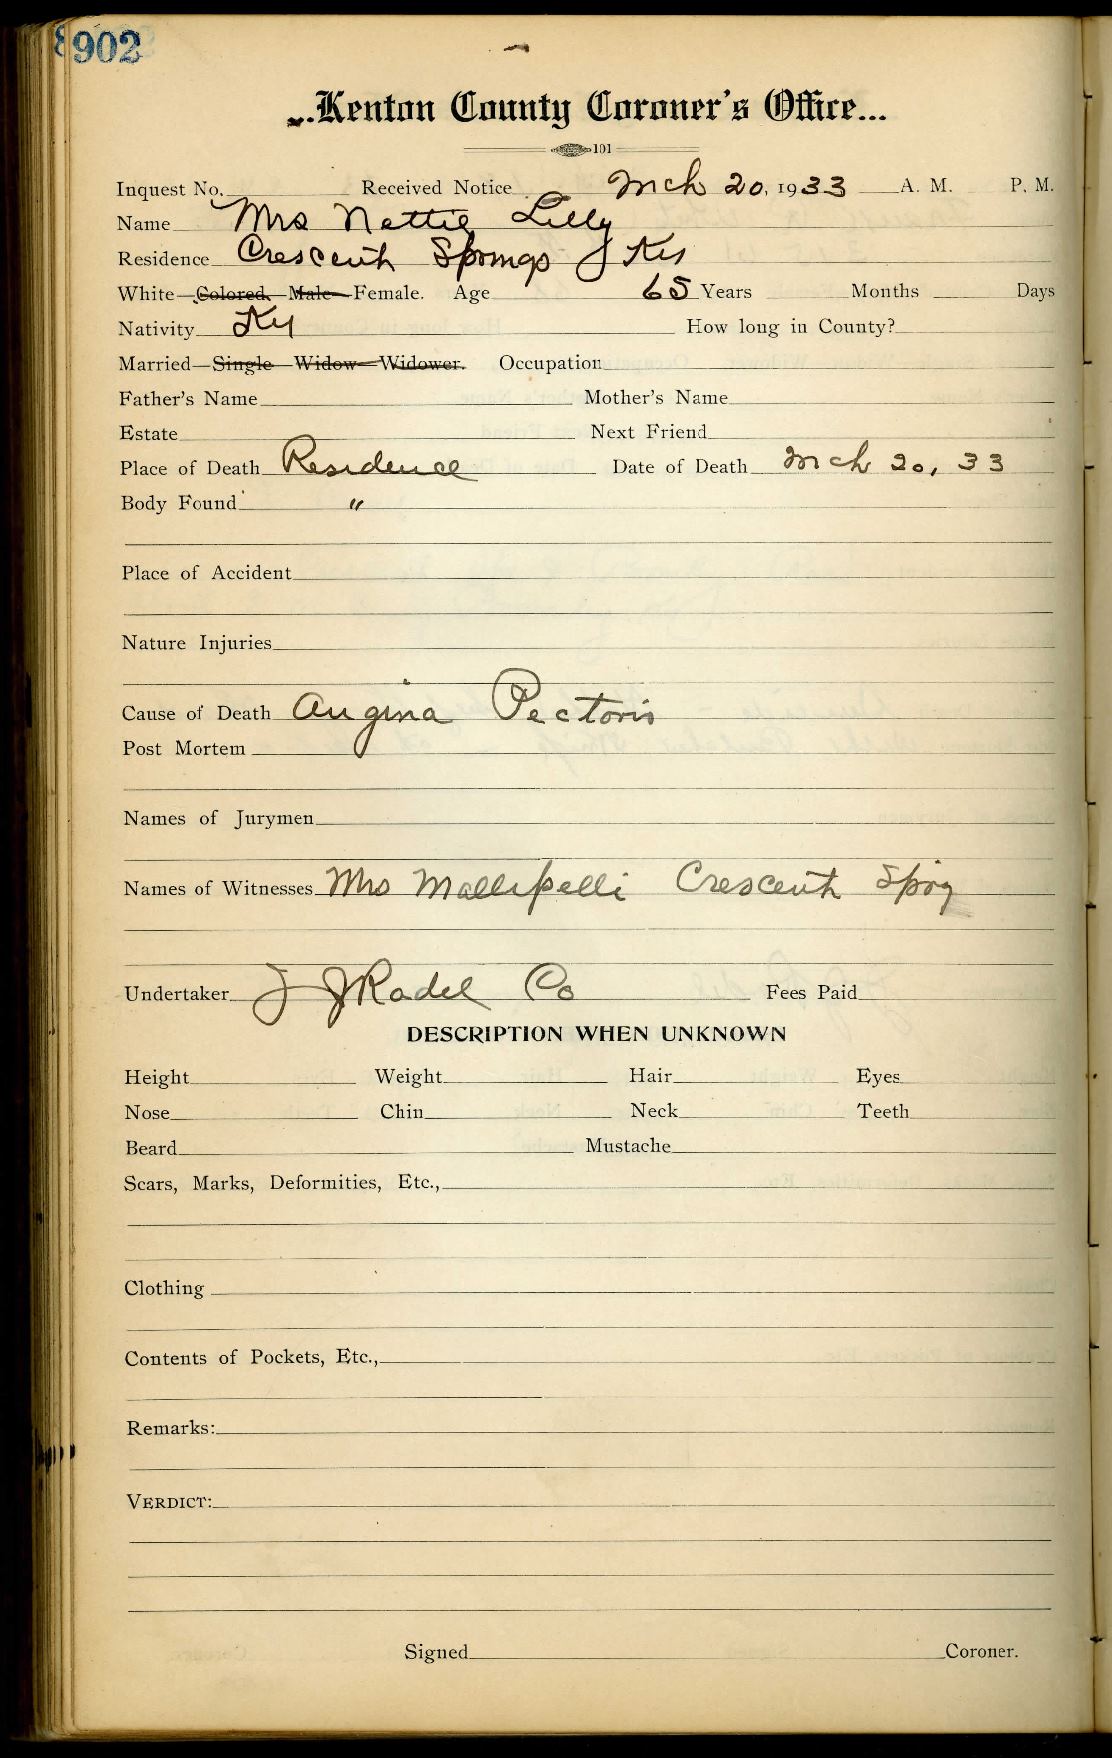 902
...Kenton County Coroner's Office...
101
Inquest No. Received Notice Mch 20, 1933 A. M. P. M.
Name Mrs Nettie Lilly
Residence Crescent Springs Ky
White Colored Male Female. Age 65 Years Months Days
Nativity Ky How long in County?
Married Single Widow Widower. Occupation
Father's Name Mother's Name
Estate Next Friend
Place of Death Residence Date of Death Mch 20, 33
Body Found "
Place of Accident
Nature Injuries
Cause of Death Angina Pectoris
Post Mortem
Names of Jurymen
Names of Witnesses Mrs Crescent Spng
Undertaker J J Radel Co Fees Paid
DESCRIPTION WHEN UNKNOWN
Height Weight Hair Eyes
Nose Chin Neck Teeth
Beard Mustache
Scars, Marks, Deformities, Etc.,
Clothing
Contents of Pockets, Etc.,
Remarks:
VERDICT:
Signed Coroner.